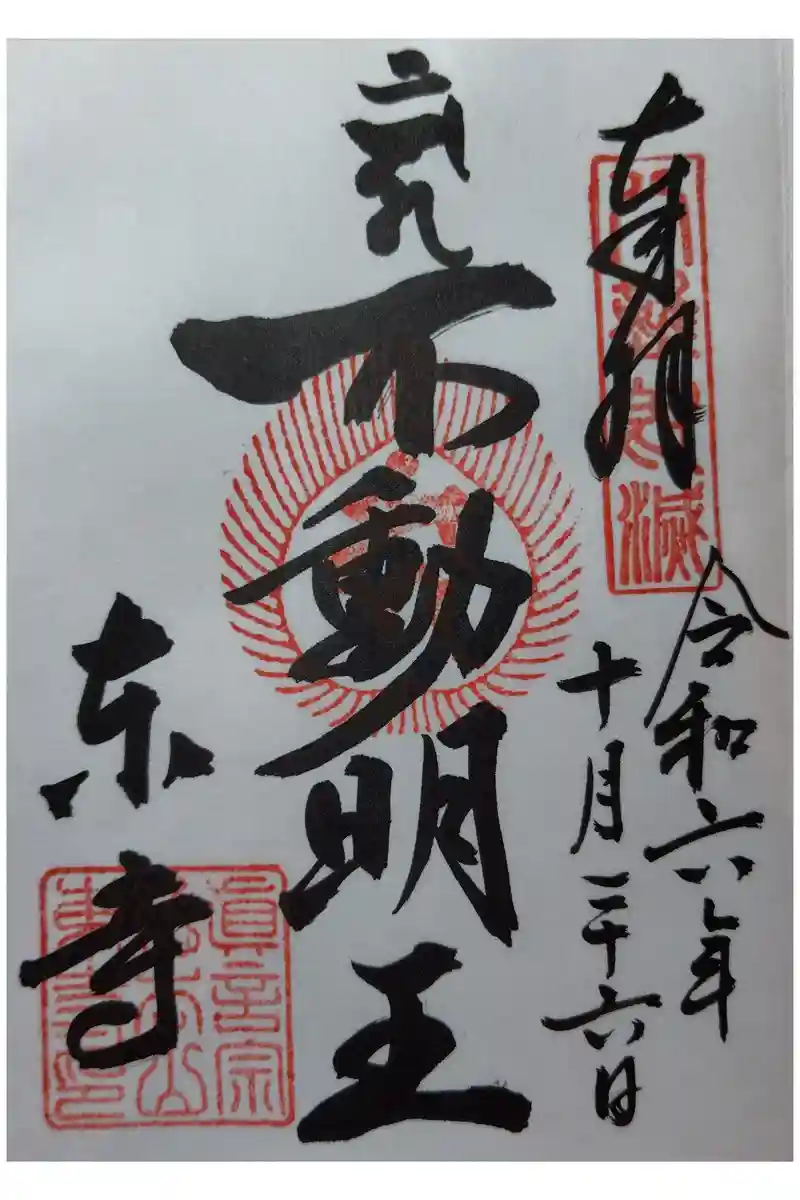 奉拝
令和六年
十月二十六日
不動明王
東寺
眞言宗
總本山